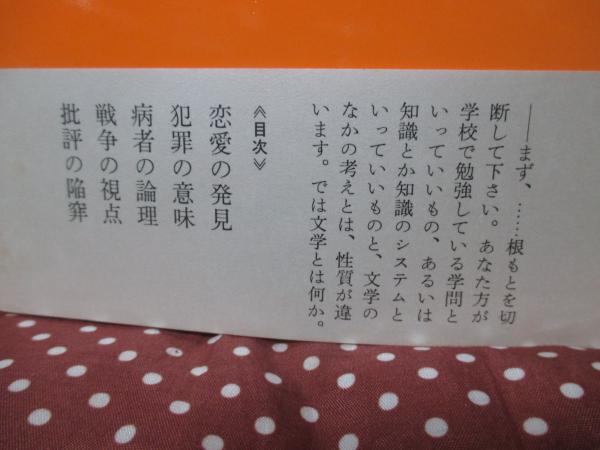 ――まず、……根もとを切
断して下さい。あなた方が
学校で勉強している学問と
いっていいもの、あるいは
知識とか知識のシステムと
いっていいものと、文学の
なかの考えとは、性質が違
います。では文学とは何か。
《目次》
恋愛の発見
犯罪の意味
病者の論理
戦争の視点
批評の陥穽